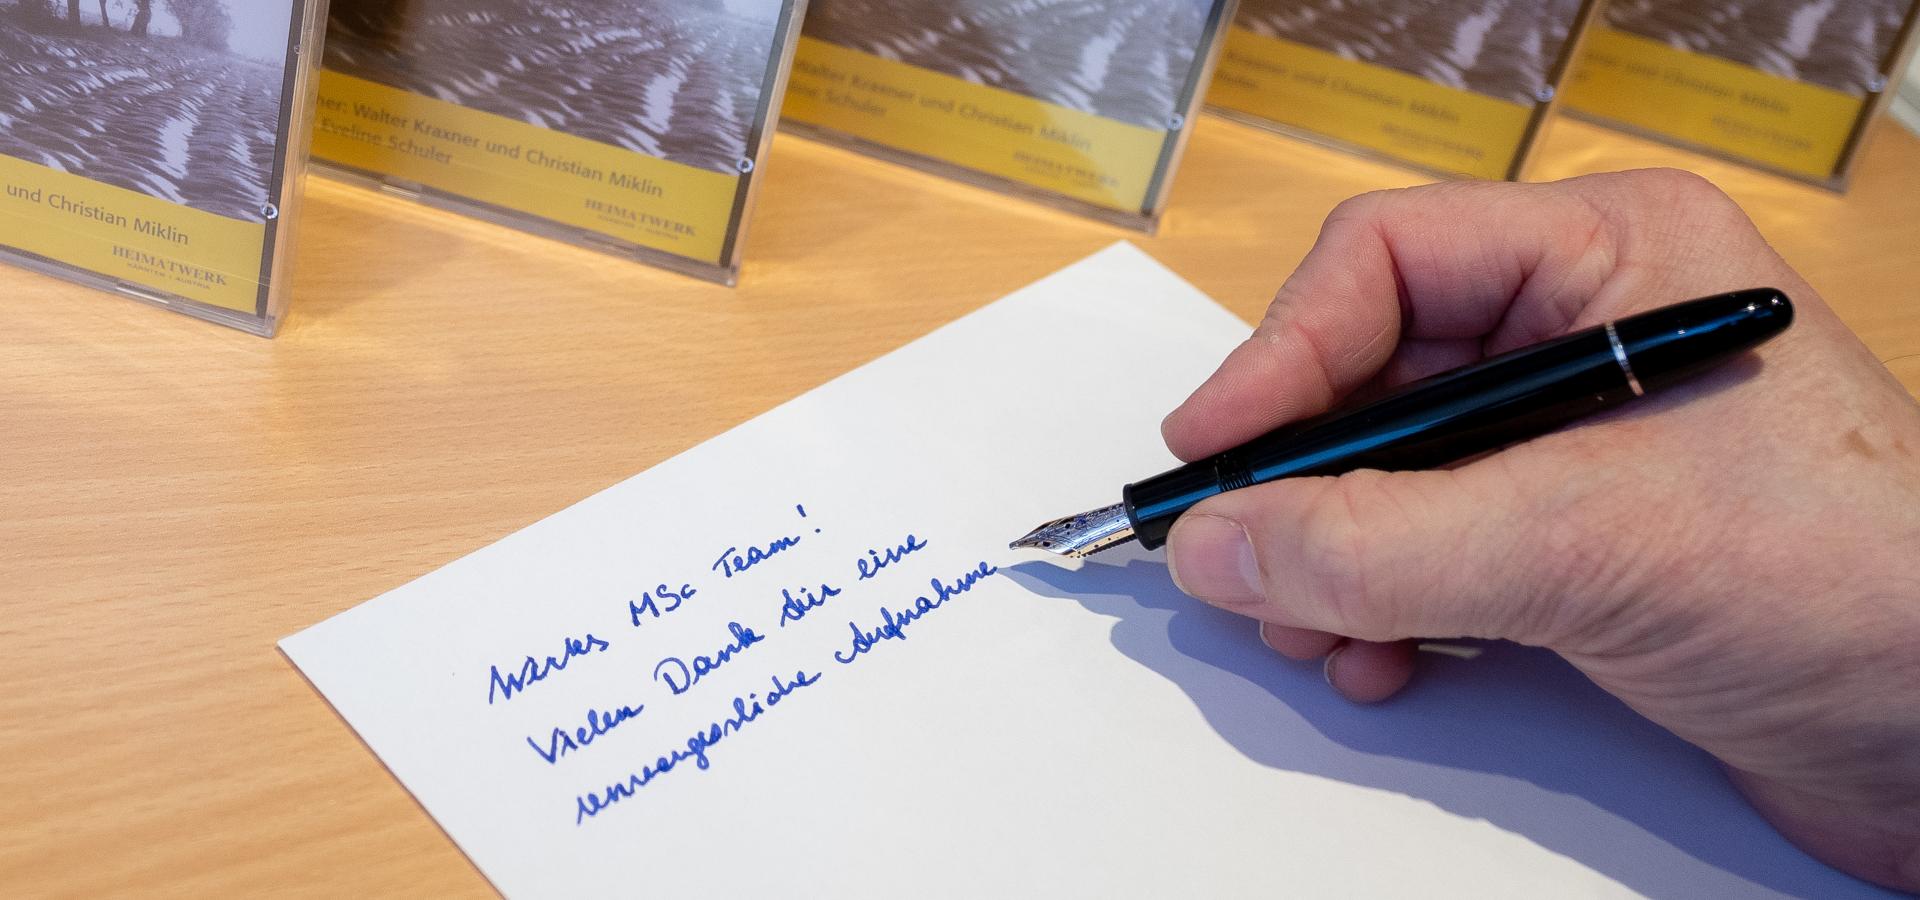 und Christian Miklin
HEIMATWERK
KÄRNTEN | AUSTRIA
her: Walter Kraxner und Christian Miklin
Eveline Schuler
HEIMATWERK
KÄRNTEN | AUSTRIA
Walter Kraxner und Christian Miklin
line Schuler
HEIMATWERK
Kraxner und Christian Miklin
Schuler
und Christian Miklin
Wertes MSc Team!
Vielen Dank für eine
unvergessliche Aufnahme